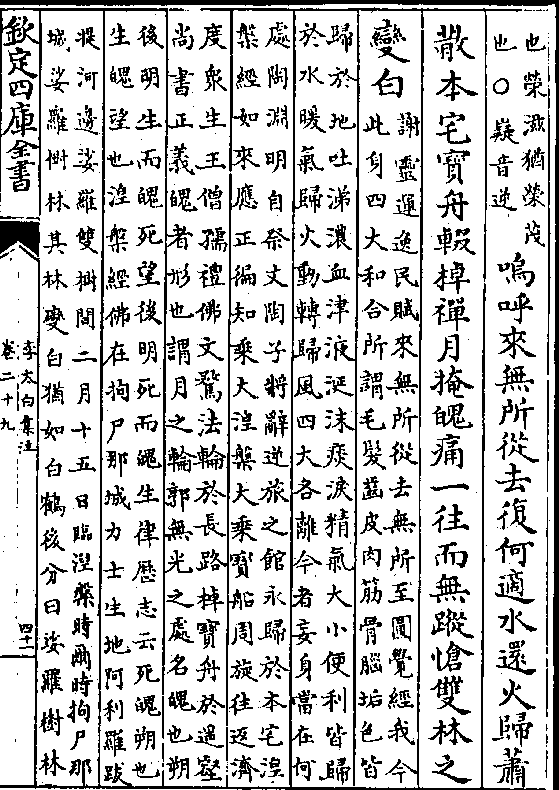 也榮滋猶榮茂
也○嶷音逆
嗚呼來無所從去復何適水還火歸蕭
散本宅寶舟輟棹禪月掩魄痛一往而無蹤愴雙林之
變白
謝靈運逸民賦來無所從去無所至圓覺經我今
此身四大和合所謂毛髮齒皮肉筋骨腦垢色皆
歸於地吐涕濃血津液涎沫痰淚精氣大小便利皆歸
於水暖氣歸火動轉歸風四大各離今者妄身當在何
處陶淵明自祭文陶子將辭逆旅之館永歸於本宅湼
槃經如來應正徧知乗大湼槃大乘寶船周旋往返濟
度衆生王僧孺禮佛文驚法輪於長路棹寶舟於遥壑
尚書正義魄者形也謂月之輪郭無光之處名魄也朔
後明生而魄死望後明死而魄生律歷志云死魄朔也
生魄望也湼槃經佛在拘尸那城力士生地阿利羅跋
提河邊娑羅雙樹間二月十五日臨湼槃時爾時拘尸那
城娑羅樹林其林變白猶如白鶴後分曰娑羅樹林
欽定四庫全書
李太白集注
卷二十九
四十一